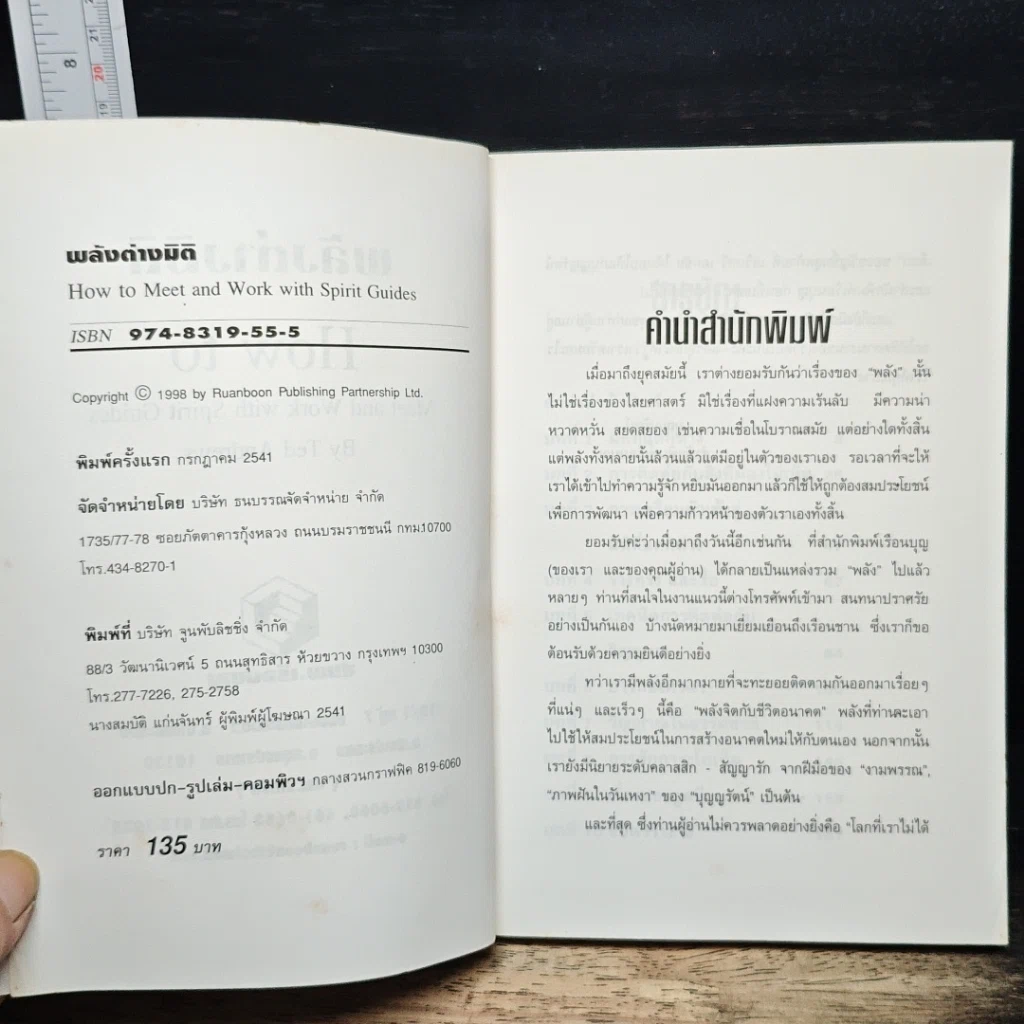 8
21
20
19
พลังต่างมิติ
How to Meet and Work with Spirit Guides
ISBN 974-8319-55-5
Copyright © 1998 by Ruanboon Publishing Partnership Ltd.
พิมพ์ครั้งแรก กรกฎาคม 2541
จัดจำหน่ายโดย บริษัท ธนบรรณจัดจำหน่าย จำกัด
1735/77-78 ซอยภัตตาคารกุ้งหลวง ถนนบรมราชชนนี กทม.10700
โทร.434-8270-1
พิมพ์ที่ บริษัท จูนพับลิชชิ่ง จำกัด
88/3 วัฒนานิเวศน์ 5 ถนนสุทธิสาร ห้วยขวาง กรุงเทพฯ 10300
โทร.277-7226, 275-2758
นางสมบัติ แก่นจันทร์ ผู้พิมพ์ผู้โฆษณา 2541
ออกแบบปก-รูปเล่ม-คอมพิวฯ กลางสวนกราฟฟิค 819-6060
ราคา 135 บาท
คำนำสำนักพิมพ์
เมื่อมาถึงยุคสมัยนี้ เราต่างยอมรับกันว่าเรื่องของ "พลัง" นั้น
ไม่ใช่เรื่องของไสยศาสตร์ มิใช่เรื่องที่แฝงความเร้นลับ มีความน่า
หวาดหวั่น สยดสยอง เช่นความเชื่อในโบราณสมัย แต่อย่างใดทั้งสิ้น
แต่พลังทั้งหลายนั้นล้วนแล้วแต่มีอยู่ในตัวของเราเอง รอเวลาที่จะให้
เราได้เข้าไปทำความรู้จัก หยิบมันออกมา แล้วก็ใช้ให้ถูกต้องสมประโยชน์
เพื่อการพัฒนา เพื่อความก้าวหน้าของตัวเราเองทั้งสิ้น
ยอมรับค่ะว่าเมื่อมาถึงวันนี้อีกเช่นกัน ที่สำนักพิมพ์เรือนบุญ
(ของเรา และของคุณผู้อ่าน) ได้กลายเป็นแหล่งรวม "พลัง" ไปแล้ว
หลายๆ ท่านที่สนใจในงานแนวนี้ต่างโทรศัพท์เข้ามา สนทนาปราศรัย
อย่างเป็นกันเอง บ้างนัดหมายมาเยี่ยมเยือนถึงเรือนชาน ซึ่งเราก็ขอ
ต้อนรับด้วยความยินดีอย่างยิ่ง
ทว่าเรามีพลังอีกมากมายที่จะทะยอยติดตามกันออกมาเรื่อยๆ
ที่แน่ๆ และเร็วๆ นี้คือ "พลังจิตกับชีวิตอนาคต" พลังที่ท่านจะเอา
ไปใช้ให้สมประโยชน์ในการสร้างอนาคตใหม่ให้กับตนเอง นอกจากนั้น
เรายังมีนิยายระดับคลาสสิก - สัญญารัก จากฝีมือของ "งามพรรณ",
"ภาพฝันในวันเหงา" ของ "บุญญรัตน์" เป็นต้น
และที่สุด ซึ่งท่านผู้อ่านไม่ควรพลาดอย่างยิ่งคือ "โลกที่เราไม่ได้